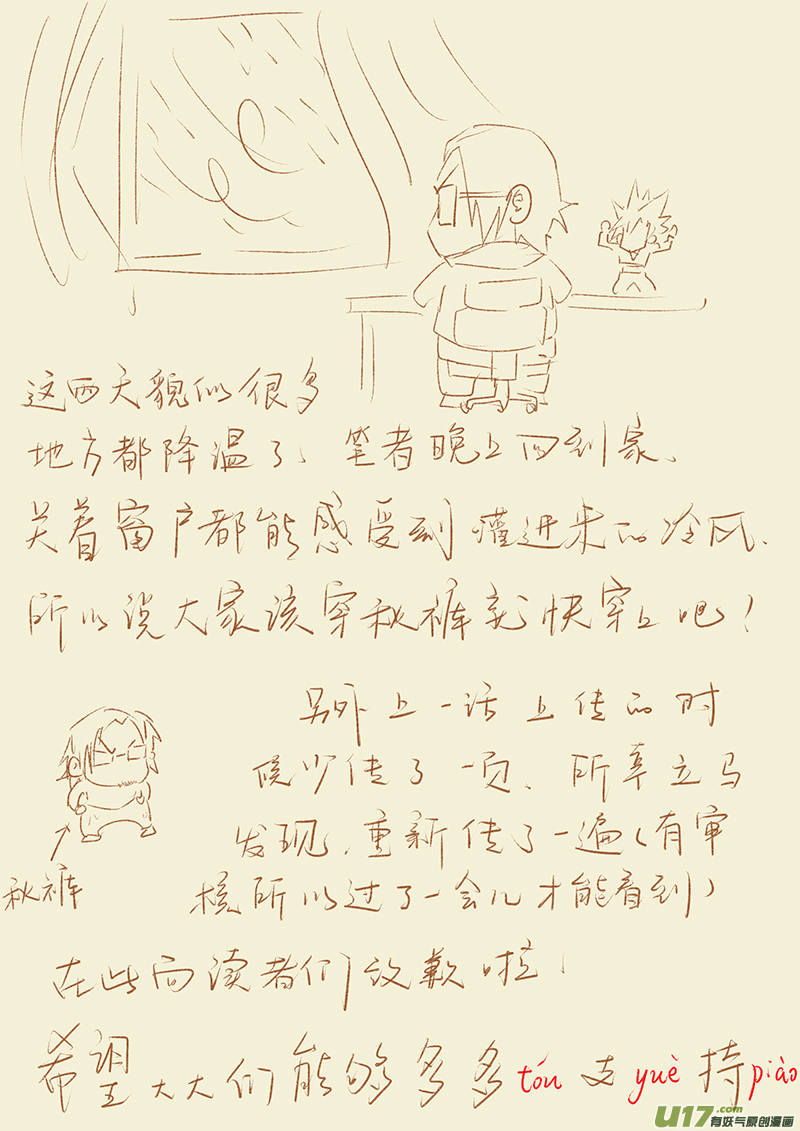 这两天貌似很多
地方都降温了、笔者晚上回到家、
关着窗户都能感受到灌进来的冷风、
所以说大家该穿秋裤就快穿上吧！
另外上一话上传的时
候少传了一页、所幸立马
发现、重新传了一遍（有审
核所以过了一会儿才能看到）
秋裤
在此向读者们致歉啦！
希望大大们能够多多tóu支yuè持piào
U17.com
有妖气原创漫画